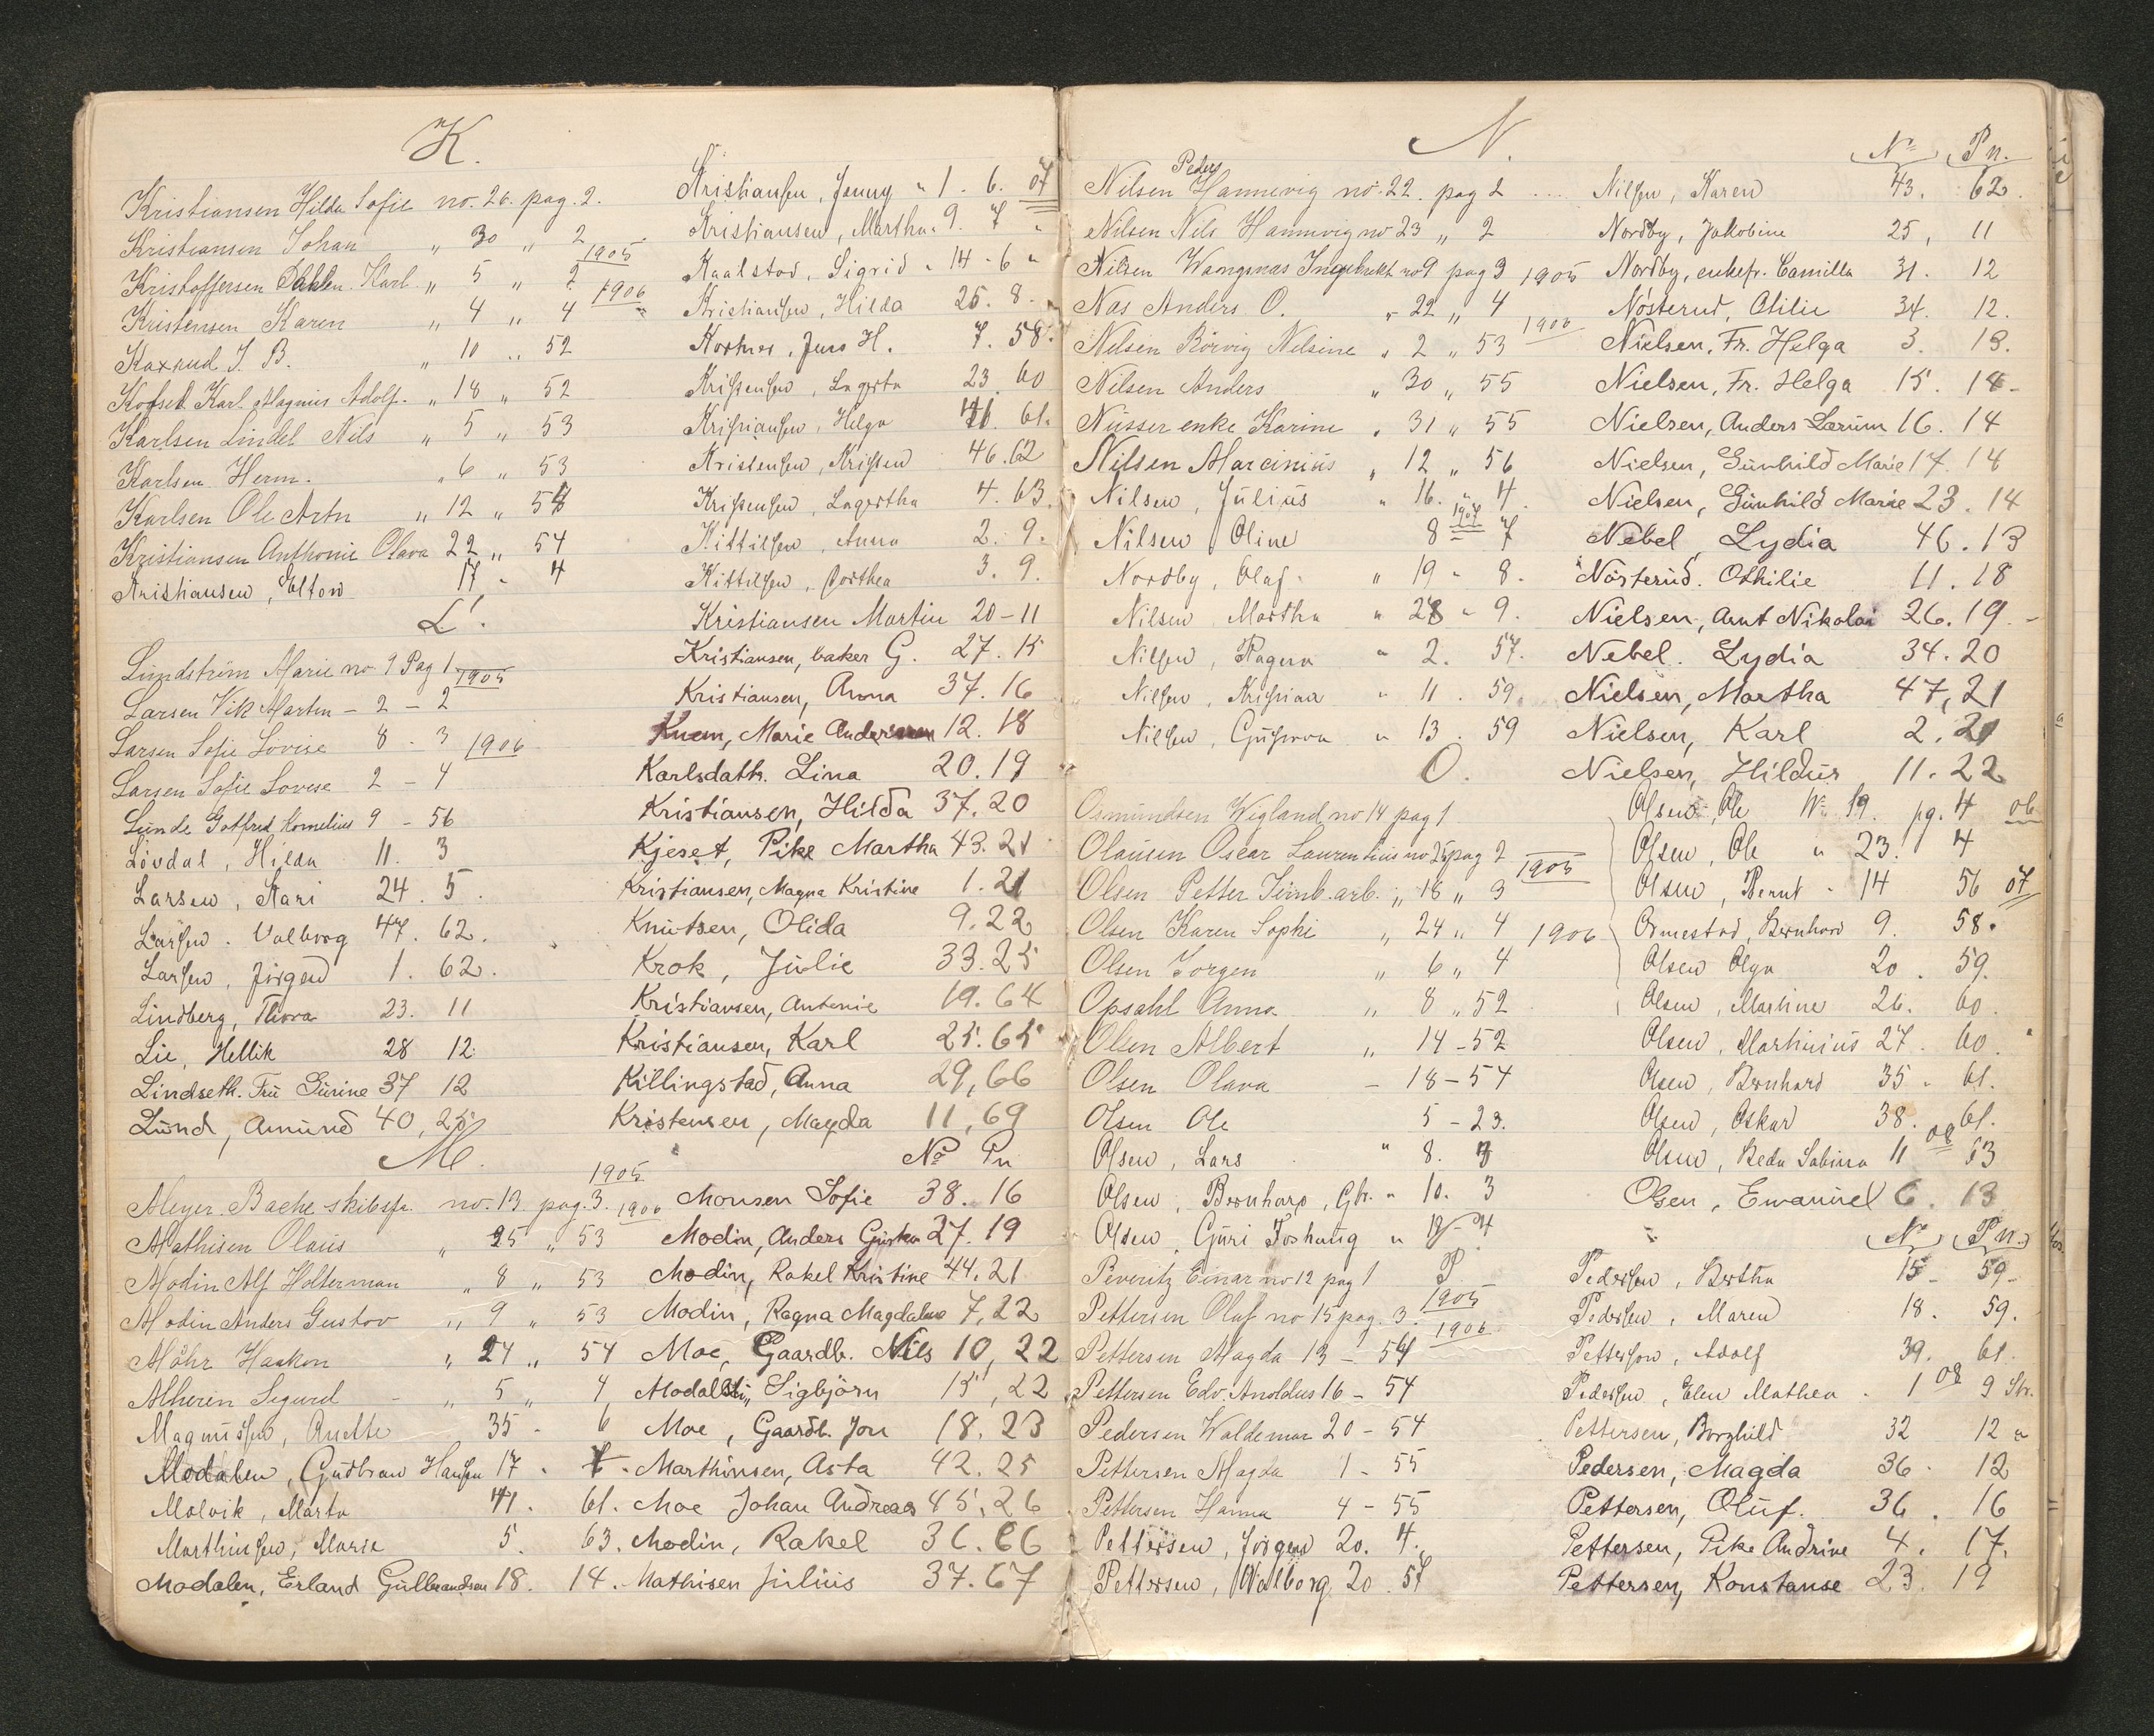 K.
Kristiansen Hilda Sofie no. 26. pag. 2.
Kristiansen Johan " 30 " 2
1905
Kristoffersen Karl " 5 " 2
1906
Kristensen Karen " 4 " 4
Kaxrud J. B. " 10 " 52
Kofsel Karl Magnus Adolf. " 18 " 52
Karlsen Lindel Nils " 5 " 53
Karlsen Herm. " 6 " 53
Karlsen Ole Artn " 12 " 54
Kristiansen Anthonie Olava 22 " 54
Kristiansen, Elton 17 " 4
L.
Lundström Marie no 9 Pag 1
1905
Larsen Vik Marten - 2 - 2
Larsen Sofie Lovise 8 - 3
1906
Larsen Sofie Lovise 2 - 4
Lunde Gotfred Kornelius 9 - 56
Lövdal, Hilda 11. 3
Larsen, Kari 24. 5.
Larsen. Valborg 47. 62.
Larsen, Jörgen 1. 62.
Lindberg, Thora 23. 11
Lie, Hellik 28 12.
Lindseth. Fru Gurine 37 12
Lund, Amund 40, 25.
M.
1905
Meyer Bache skibsfr. no. 13 pag. 3.
1906
Mathisen Olaus " 25 " 53
Modin Alf Holterman " 8 " 53
Modin Anders Gustav " 9 " 53
Möhr Haakon " 24 " 54
Mheren Sigurd " 5 " 4
Magnussen, Anette 35 - 6
Modalen, Gudbran Hansen 17 -
Molvik, Marta 41. 61.
Marthinsen, Marie 5. 63.
Modalen, Erland Gulbrandsen 18. 14.
Kristiansen, Jenny " 1. 6. 07
Kristiansen, Martha " 9. 7 "
Kaalstad, Sigrid " 14 - 6 "
Kristiansen, Hilda 25. 8. "
Kortner, Jens H. 7. 58.
Kristensen, Lagerta 23. 60
Kristiansen, Helga 41. 61.
Kristensen, Kristen 46. 62
Kristensen, Lagertha 4. 63.
Kittilsen, Anna 2. 9.
Kittilsen, Dorthea 3. 9.
Kristiansen Martin 20 - 11
Kristiansen, baker G. 27. 15
Kristiansen, Anna 37. 16
Knem, Marie Andersen 12. 18
Karlsdath. Lina 20. 19
Kristiansen, Hilda 37. 20
Kjeset, Pike Martha 43. 21
Kristiansen, Magna Kristine 1. 21
Knutsen, Olida 9. 22
Krok, Julie 33. 25
Kristiansen, Antonie 19. 64
Kristiansen, Karl 25. 65
Killingstad, Anna 29, 66
Kristensen, Magda 11, 69
No Pn
Monsen Sofie 38. 16
Modin, Anders Gustav 27. 19
Modin, Rakel Kristine 44. 21
Modin, Ragna Magdalene 7, 22
Moe, Gaardb. Nils 10, 22
Sigbjörn 15, 22
Moe, Gaardb. Jon 18. 23
Marthinsen, Asta 42. 25
Moe Johan Andreas 45, 26
Modin, Rakel 36. 66
Mathisen Julius 37. 67
N.
Peder
Nilsen Hannevig no. 22. pag 2
Nilsen Nils Hannevig no 23 " 2
Nilsen Wangsnas Ingebrekt no 9 pag 3 1905
Nas Anders O. " 22 " 4
1906
Nilsen Rörvig Nilsine " 2 " 53
Nilsen Anders " 30 " 55
Nusser enke Karine " 31 " 55
Nilsen Marcinius " 12 " 56
Nilsen, Julius " 16. " 4.
1907
Nilsen Oline 8 7
Nordby, Olaf " 19 " 8.
Nilsen Martha " 28 " 9.
Nilsen, Ragna " 2. 57.
Nilsen, Kristian " 11. 59.
Nilsen, Gustava " 13. 59
O.
Osmundsen Wigland no 14 pag 1
Olausen Oscar Laurentius no 25 pag 2
1905
Olsen Petter Tömb. arb. " 18 " 3
Olsen Karen Sophi " 24 " 4 1906
Olsen Jorgen " 6 " 4
Opsahl Anna " 8 " 52
Olsen Albert " 14 - 52
Olsen Olava - 18 - 54
Olsen Ole 5 - 23.
Olsen, Lars " 8. 3
Olsen, Bernhard, Gbr. " 10. 3
Olsen, Guri Foshaug " 12 - 4
P.
Peveritz Einar no 12 pag 1
1905
Pettersen Oluf no 15 pag. 3.
1906
Pettersen Magda 13 - 54
Pettersen Edv. Arnoldus 16 - 54
Pedersen Waldemar 20 - 54
Pettersen Magda 1 - 55
Pettersen Hanna 4 - 55
Pettersen, Jörgen 20. 4.
Pettersen, Walborg 20. 57
No Pn.
Nilsen, Karen 43. 62.
Nordby, Jakobine 25, 11
Nordby, enkefr. Camilla 31. 12
Nösterud, Otilie 34. 12.
Nielsen, Fr. Helga 3. 13.
Nielsen, Fr. Helga 15. 14.
Nielsen, Anders Lærum 16. 14
Nielsen, Gunhild Marie 17. 14
Nielsen, Gunhild Marie 23. 14
Nebel Lydia 46. 13
Nösterud. Othilie 11. 18
Nielsen, Arnt Nikolai 26. 19.
Nebel. Lydia 34. 20
Nielsen, Martha 47, 21
Nielsen, Karl 2. 21
Nielsen, Hildur 11. 22
Olsen, Ole No 19. pg. 4 06
Olsen, Ole " 23. 4
Olsen, Bernt " 14 56 07
Ormestad, Bernhard 9. 58.
Olsen Olga 20. 59.
Olsen, Martine 26. 60.
Olsen, Marthinius 27. 60.
Olsen, Bernhard 35 " 61.
Olsen, Oskar 38. 61.
08
Olsen, Beda Sabina 11 13
Olsen, Emanuel 6. 13
No Pn.
Pedersen, Bertha 15 - 59 -
Pedersen, Maren 18. 59.
Pettersen, Adolf 39. 61.
Pedersen, Elen Mathea. 1 08 9 Str.
Pettersen, Borghild 32 12 "
Pedersen, Magda 36. 12
Pettersen, Oluf. 36. 16
Pettersen, Pike Andrine 4. 17.
Pettersen, Konstanse 23. 19